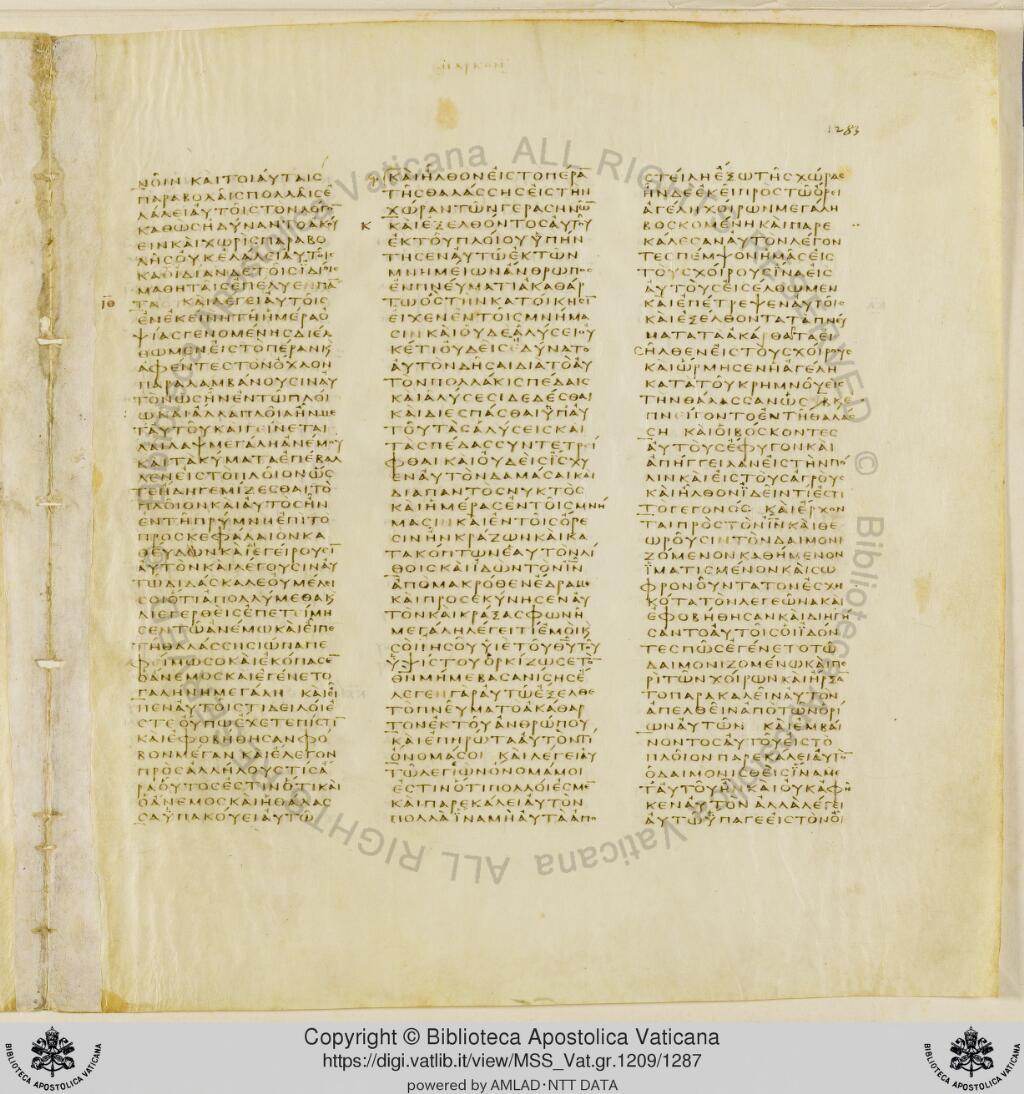 ΜΑΡΚΟΝ
1283
ΝΟΙΝ ΚΑΙ ΤΟΙΑΥΤΑΙΣ
ΠΑΡΑΒΟΛΑΙΣ ΠΟΛΛΑΙΣ Ε
ΛΑΛΕΙ ΑΥΤΟΙΣ ΤΟΝ ΛΟΓΟ
ΚΑΘΩΣ ΗΔΥΝΑΝΤΟ ΑΚΟΥ
ΕΙΝ ΚΑΙ ΧΩΡΙΣ ΠΑΡΑΒΟ
ΛΗΣ ΟΥΚ ΕΛΑΛΕΙ ΑΥΤΟΙΣ
ΚΑΘ ΙΔΙΑΝ ΔΕ ΤΟΙΣ ΙΔΙΟΙΣ
ΜΑΘΗΤΑΙΣ ΕΠΕΛΥΕΝ ΠΑ
ΙΘ
ΤΑ ΚΑΙ ΛΕΓΕΙ ΑΥΤΟΙΣ
ΕΝ ΕΚΕΙΝΗ ΤΗ ΗΜΕΡΑ Ο
ΨΙΑΣ ΓΕΝΟΜΕΝΗΣ ΔΙΕΛ
ΘΩΜΕΝ ΕΙΣ ΤΟ ΠΕΡΑΝ Κ
ΑΦΕΝΤΕΣ ΤΟΝ ΟΧΛΟΝ
ΠΑΡΑΛΑΜΒΑΝΟΥΣΙΝ ΑΥ
ΤΟΝ ΩΣ ΗΝ ΕΝ ΤΩ ΠΛΟΙ
Ω ΚΑΙ ΑΛΛΑ ΠΛΟΙΑ ΗΝ ΜΕ
Τ ΑΥΤΟΥ ΚΑΙ ΓΕΙΝΕΤΑΙ
ΛΑΙΛΑΨ ΜΕΓΑΛΗ ΑΝΕΜΟΥ
ΚΑΙ ΤΑ ΚΥΜΑΤΑ ΕΠΕΒΑΛ
ΛΕΝ ΕΙΣ ΤΟ ΠΛΟΙΟΝ ΩΣ
ΤΕ ΗΔΗ ΓΕΜΙΖΕΣΘΑΙ ΤΟ
ΠΛΟΙΟΝ ΚΑΙ ΑΥΤΟΣ ΗΝ
ΕΝ ΤΗ ΠΡΥΜΝΗ ΕΠΙ ΤΟ
ΠΡΟΣΚΕΦΑΛΑΙΟΝ ΚΑ
ΘΕΥΔΩΝ ΚΑΙ ΕΓΕΙΡΟΥΣΙ
ΑΥΤΟΝ ΚΑΙ ΛΕΓΟΥΣΙΝ ΑΥ
ΤΩ ΔΙΔΑΣΚΑΛΕ ΟΥ ΜΕΛΕΙ
ΣΟΙ ΟΤΙ ΑΠΟΛΛΥΜΕΘΑ Κ
ΔΙΕΓΕΡΘΕΙΣ ΕΠΕΤΕΙΜΗ
ΣΕΝ ΤΩ ΑΝΕΜΩ ΚΑΙ ΕΙΠΕ
ΤΗ ΘΑΛΑΣΣΗ ΣΙΩΠΑ ΠΕ
ΦΕΙΜΩΣΟ ΚΑΙ ΕΚΟΠΑΣΕ
Ο ΑΝΕΜΟΣ ΚΑΙ ΕΓΕΝΕΤΟ
ΓΑΛΗΝΗ ΜΕΓΑΛΗ ΚΑΙ ΕΙ
ΠΕΝ ΑΥΤΟΙΣ ΤΙ ΔΕΙΛΟΙ Ε
ΣΤΕ ΟΥΠΩ ΕΧΕΤΕ ΠΙΣΤΙ
ΚΑΙ ΕΦΟΒΗΘΗΣΑΝ ΦΟ
ΒΟΝ ΜΕΓΑΝ ΚΑΙ ΕΛΕΓΟΝ
ΠΡΟΣ ΑΛΛΗΛΟΥΣ ΤΙΣ Α
ΡΑ ΟΥΤΟΣ ΕΣΤΙΝ ΟΤΙ ΚΑΙ
Ο ΑΝΕΜΟΣ ΚΑΙ Η ΘΑΛΑΣ
ΣΑ ΥΠΑΚΟΥΕΙ ΑΥΤΩ
ΚΑΙ ΗΛΘΟΝ ΕΙΣ ΤΟ ΠΕΡΑ
ΤΗΣ ΘΑΛΑΣΣΗΣ ΕΙΣ ΤΗΝ
ΧΩΡΑΝ ΤΩΝ ΓΕΡΑΣΗΝΩ
Κ
ΚΑΙ ΕΞΕΛΘΟΝΤΟΣ ΑΥΤΟΥ
ΕΚ ΤΟΥ ΠΛΟΙΟΥ ΥΠΗΝ
ΤΗΣΕΝ ΑΥΤΩ ΕΚ ΤΩΝ
ΜΝΗΜΕΙΩΝ ΑΝΘΡΩΠΟΣ
ΕΝ ΠΝΕΥΜΑΤΙ ΑΚΑΘΑΡ
ΤΩ ΟΣ ΤΗΝ ΚΑΤΟΙΚΗΣΙ
ΕΙΧΕΝ ΕΝ ΤΟΙΣ ΜΝΗΜΑ
ΣΙΝ ΚΑΙ ΟΥΔΕ ΑΛΥΣΕΙ ΟΥ
ΚΕΤΙ ΟΥΔΕΙΣ ΕΔΥΝΑΤΟ
ΑΥΤΟΝ ΔΗΣΑΙ ΔΙΑ ΤΟ ΑΥ
ΤΟΝ ΠΟΛΛΑΚΙΣ ΠΕΔΑΙΣ
ΚΑΙ ΑΛΥΣΕΣΙ ΔΕΔΕΣΘΑΙ
ΚΑΙ ΔΙΕΣΠΑΣΘΑΙ ΥΠ ΑΥ
ΤΟΥ ΤΑΣ ΑΛΥΣΕΙΣ ΚΑΙ
ΤΑΣ ΠΕΔΑΣ ΣΥΝΤΕΤΡΙ
ΦΘΑΙ ΚΑΙ ΟΥΔΕΙΣ ΙΣΧΥ
ΕΝ ΑΥΤΟΝ ΔΑΜΑΣΑΙ ΚΑΙ
ΔΙΑ ΠΑΝΤΟΣ ΝΥΚΤΟΣ
ΚΑΙ ΗΜΕΡΑΣ ΕΝ ΤΟΙΣ ΜΝΗ
ΜΑΣΙΝ ΚΑΙ ΕΝ ΤΟΙΣ ΟΡΕ
ΣΙΝ ΗΝ ΚΡΑΖΩΝ ΚΑΙ ΚΑ
ΤΑΚΟΠΤΩΝ ΕΑΥΤΟΝ ΛΙ
ΘΟΙΣ ΚΑΙ ΙΔΩΝ ΤΟΝ ΙΝ
ΑΠΟ ΜΑΚΡΟΘΕΝ ΕΔΡΑΜΕ
ΚΑΙ ΠΡΟΣΕΚΥΝΗΣΕΝ ΑΥ
ΤΟΝ ΚΑΙ ΚΡΑΞΑΣ ΦΩΝΗ
ΜΕΓΑΛΗ ΛΕΓΕΙ ΤΙ ΕΜΟΙ Κ
ΣΟΙ ΙΗΣΟΥ ΥΙΕ ΤΟΥ ΘΥ ΤΟΥ
ΥΨΙΣΤΟΥ ΟΡΚΙΖΩ ΣΕ ΤΟ
ΘΝ ΜΗ ΜΕ ΒΑΣΑΝΙΣΗΣ Ε
ΛΕΓΕΝ ΓΑΡ ΑΥΤΩ ΕΞΕΛΘΕ
ΤΟ ΠΝΕΥΜΑ ΤΟ ΑΚΑΘΑΡ
ΤΟΝ ΕΚ ΤΟΥ ΑΝΘΡΩΠΟΥ
ΚΑΙ ΕΠΗΡΩΤΑ ΑΥΤΟΝ ΤΙ
ΟΝΟΜΑ ΣΟΙ ΚΑΙ ΛΕΓΕΙ ΑΥ
ΤΩ ΛΕΓΙΩΝ ΟΝΟΜΑ ΜΟΙ
ΕΣΤΙΝ ΟΤΙ ΠΟΛΛΟΙ ΕΣΜΕ
ΚΑΙ ΠΑΡΕΚΑΛΕΙ ΑΥΤΟΝ
ΠΟΛΛΑ ΙΝΑ ΜΗ ΑΥΤΑ ΑΠΟ
ΣΤΕΙΛΗ ΕΞΩ ΤΗΣ ΧΩΡΑΣ
ΗΝ ΔΕ ΕΚΕΙ ΠΡΟΣ ΤΩ ΟΡΕΙ
ΑΓΕΛΗ ΧΟΙΡΩΝ ΜΕΓΑΛΗ
ΒΟΣΚΟΜΕΝΗ ΚΑΙ ΠΑΡΕ
ΚΑΛΕΣΑΝ ΑΥΤΟΝ ΛΕΓΟΝ
ΤΕΣ ΠΕΜΨΟΝ ΗΜΑΣ ΕΙΣ
ΤΟΥΣ ΧΟΙΡΟΥΣ ΙΝΑ ΕΙΣ
ΑΥΤΟΥΣ ΕΙΣΕΛΘΩΜΕΝ
ΚΑΙ ΕΠΕΤΡΕΨΕΝ ΑΥΤΟΙΣ
ΚΑΙ ΕΞΕΛΘΟΝΤΑ ΤΑ ΠΝΕΥ
ΜΑΤΑ ΤΑ ΑΚΑΘΑΡΤΑ ΕΙ
ΣΗΛΘΕΝ ΕΙΣ ΤΟΥΣ ΧΟΙΡΟΥΣ
ΚΑΙ ΩΡΜΗΣΕΝ Η ΑΓΕΛΗ
ΚΑΤΑ ΤΟΥ ΚΡΗΜΝΟΥ ΕΙΣ
ΤΗΝ ΘΑΛΑΣΣΑΝ ΩΣ ΒΚΕ
ΠΝΕΙΓΟΝΤΟ ΕΝ ΤΗ ΘΑΛΑΣ
ΣΗ ΚΑΙ ΟΙ ΒΟΣΚΟΝΤΕΣ
ΑΥΤΟΥΣ ΕΦΥΓΟΝ ΚΑΙ
ΑΠΗΓΓΕΙΛΑΝ ΕΙΣ ΤΗΝ ΠΟ
ΛΙΝ ΚΑΙ ΕΙΣ ΤΟΥΣ ΑΓΡΟΥΣ
ΚΑΙ ΗΛΘΟΝ ΙΔΕΙΝ ΤΙ ΕΣΤΙ
ΤΟ ΓΕΓΟΝΟΣ ΚΑΙ ΕΡΧΟΝ
ΤΑΙ ΠΡΟΣ ΤΟΝ ΙΝ ΚΑΙ ΘΕ
ΩΡΟΥΣΙΝ ΤΟΝ ΔΑΙΜΟΝΙ
ΖΟΜΕΝΟΝ ΚΑΘΗΜΕΝΟΝ
ΙΜΑΤΙΣΜΕΝΟΝ ΚΑΙ ΣΩ
ΦΡΟΝΟΥΝΤΑ ΤΟΝ ΕΣΧΗ
ΚΟΤΑ ΤΟΝ ΛΕΓΕΩΝΑ ΚΑΙ
ΕΦΟΒΗΘΗΣΑΝ ΚΑΙ ΔΙΗΓΗ
ΣΑΝΤΟ ΑΥΤΟΙΣ ΟΙ ΙΔΟΝ
ΤΕΣ ΠΩΣ ΕΓΕΝΕΤΟ ΤΩ
ΔΑΙΜΟΝΙΖΟΜΕΝΩ ΚΑΙ ΠΕ
ΡΙ ΤΩΝ ΧΟΙΡΩΝ ΚΑΙ ΗΡΞΑ
ΤΟ ΠΑΡΑΚΑΛΕΙΝ ΑΥΤΟΝ
ΑΠΕΛΘΕΙΝ ΑΠΟ ΤΩΝ ΟΡΙ
ΩΝ ΑΥΤΩΝ ΚΑΙ ΕΜΒΑΙ
ΝΟΝΤΟΣ ΑΥΤΟΥ ΕΙΣ ΤΟ
ΠΛΟΙΟΝ ΠΑΡΕΚΑΛΕΙ ΑΥΤΟ
Ο ΔΑΙΜΟΝΙΣΘΕΙΣ ΙΝΑ ΜΕ
Τ ΑΥΤΟΥ Η ΚΑΙ ΟΥΚ ΑΦΗ
ΚΕΝ ΑΥΤΟΝ ΑΛΛΑ ΛΕΓΕΙ
ΑΥΤΩ ΥΠΑΓΕ ΕΙΣ ΤΟΝ ΟΙ
Copyright © Biblioteca Apostolica Vaticana
https://digi.vatlib.it/view/MSS_Vat.gr.1209/1287
powered by AMLAD·NTT DATA
BIBLIOTECA APOSTOLICA VATICANA
BIBLIOTECA APOSTOLICA VATICANA